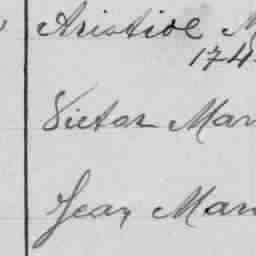 Aristide M
174
Victor Mar
Jean Mar